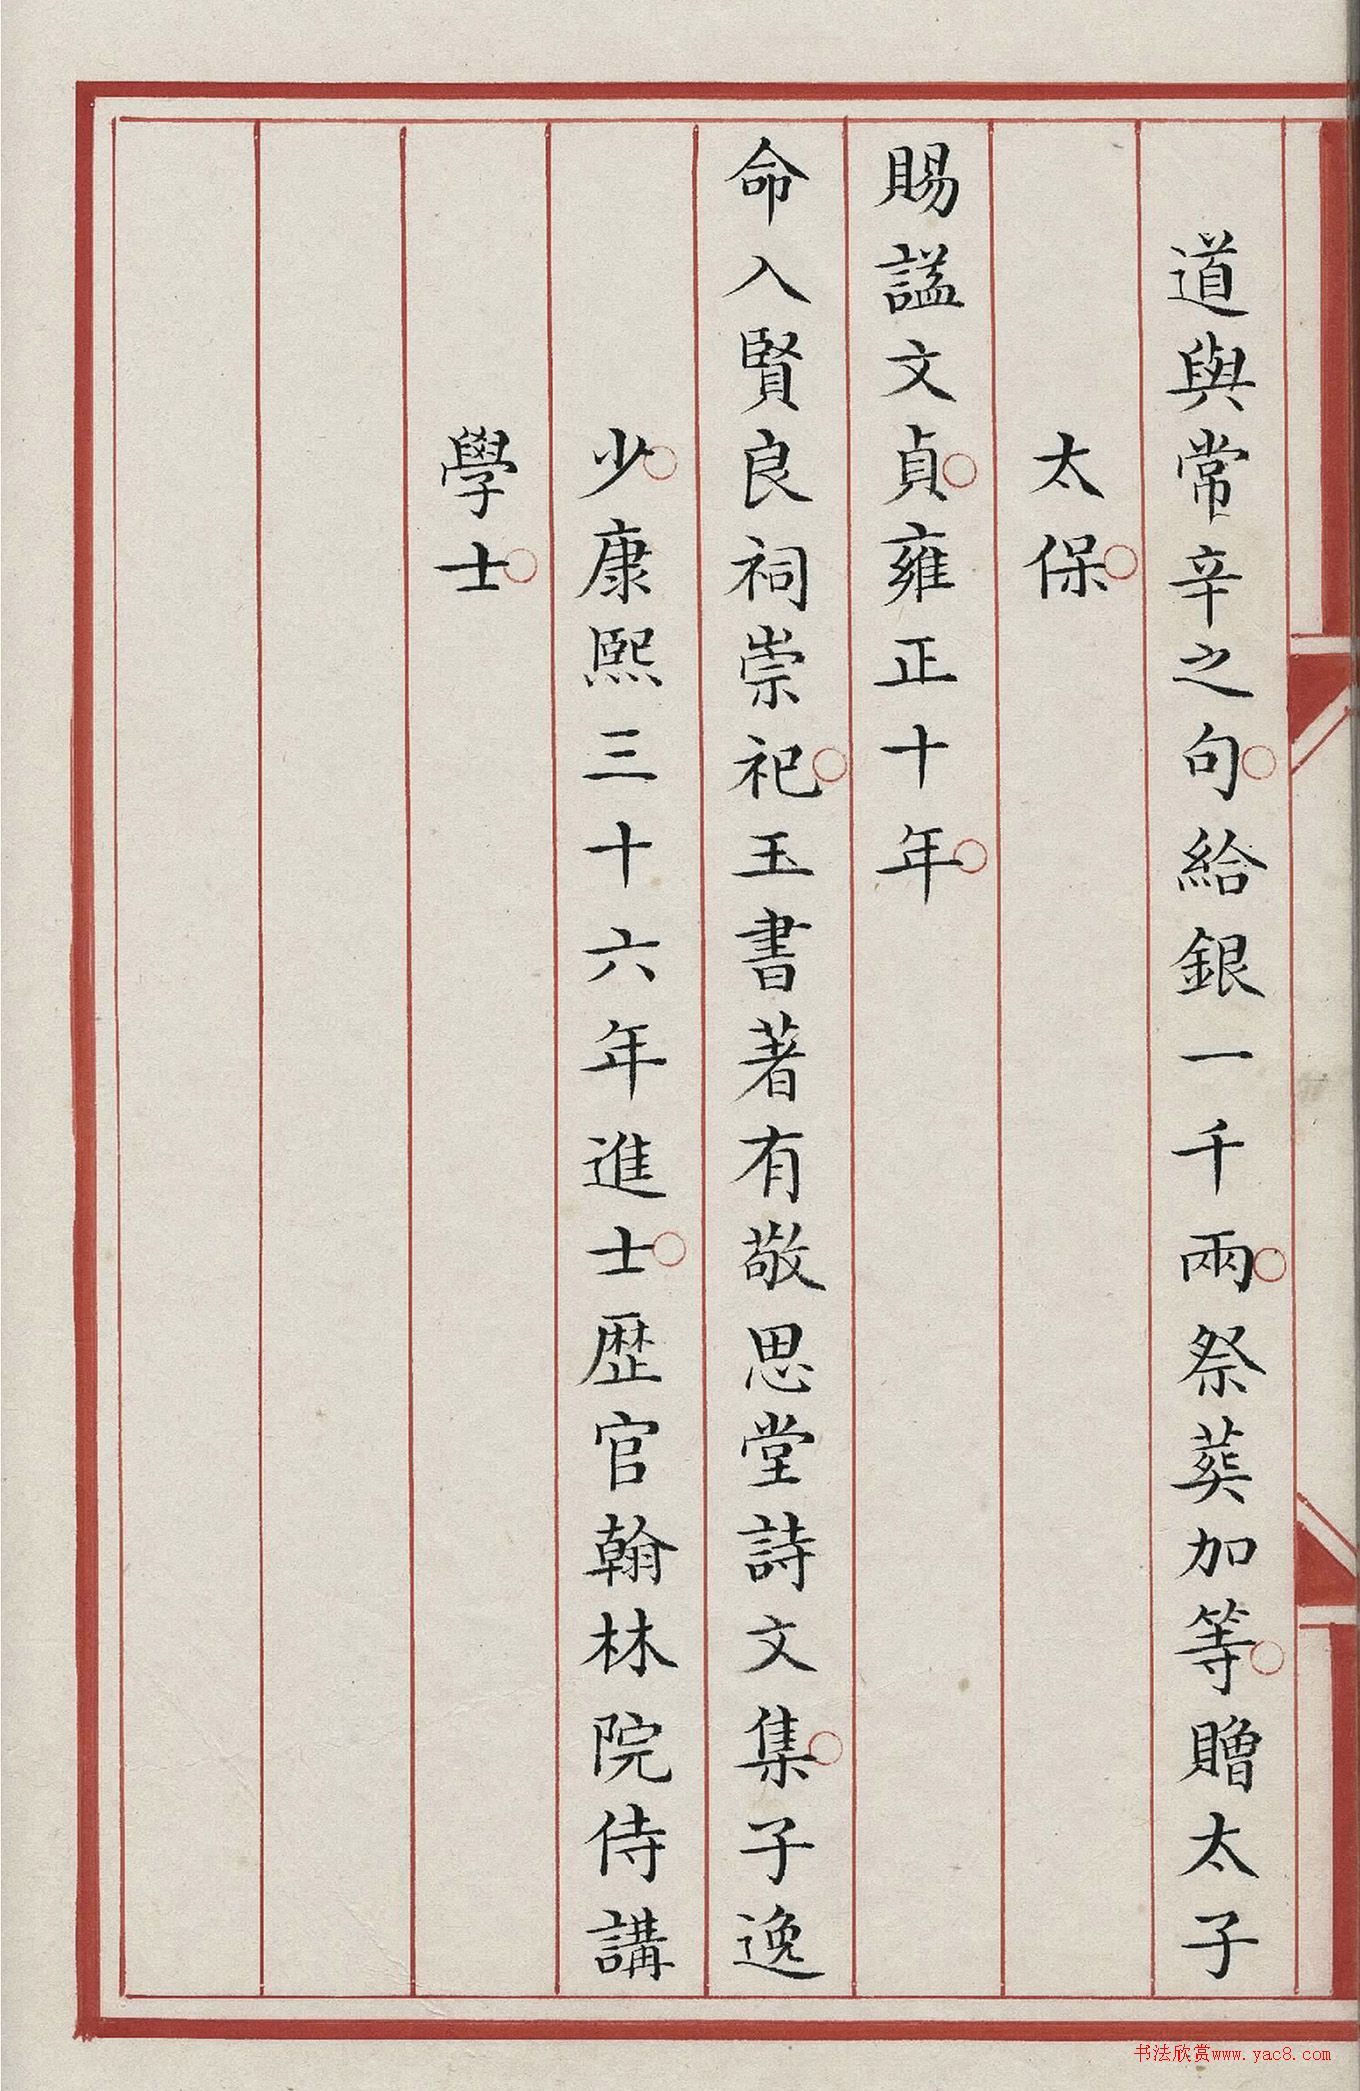 道與常辛之句○給銀一千兩○祭葬加等○贈太子
太保○
賜謚文貞○雍正十年○
命入賢良祠崇祀○玉書著有敬思堂詩文集○子逸
少○康熙三十六年進士○歷官翰林院侍講
學士○
书法欣赏www.yac8.com